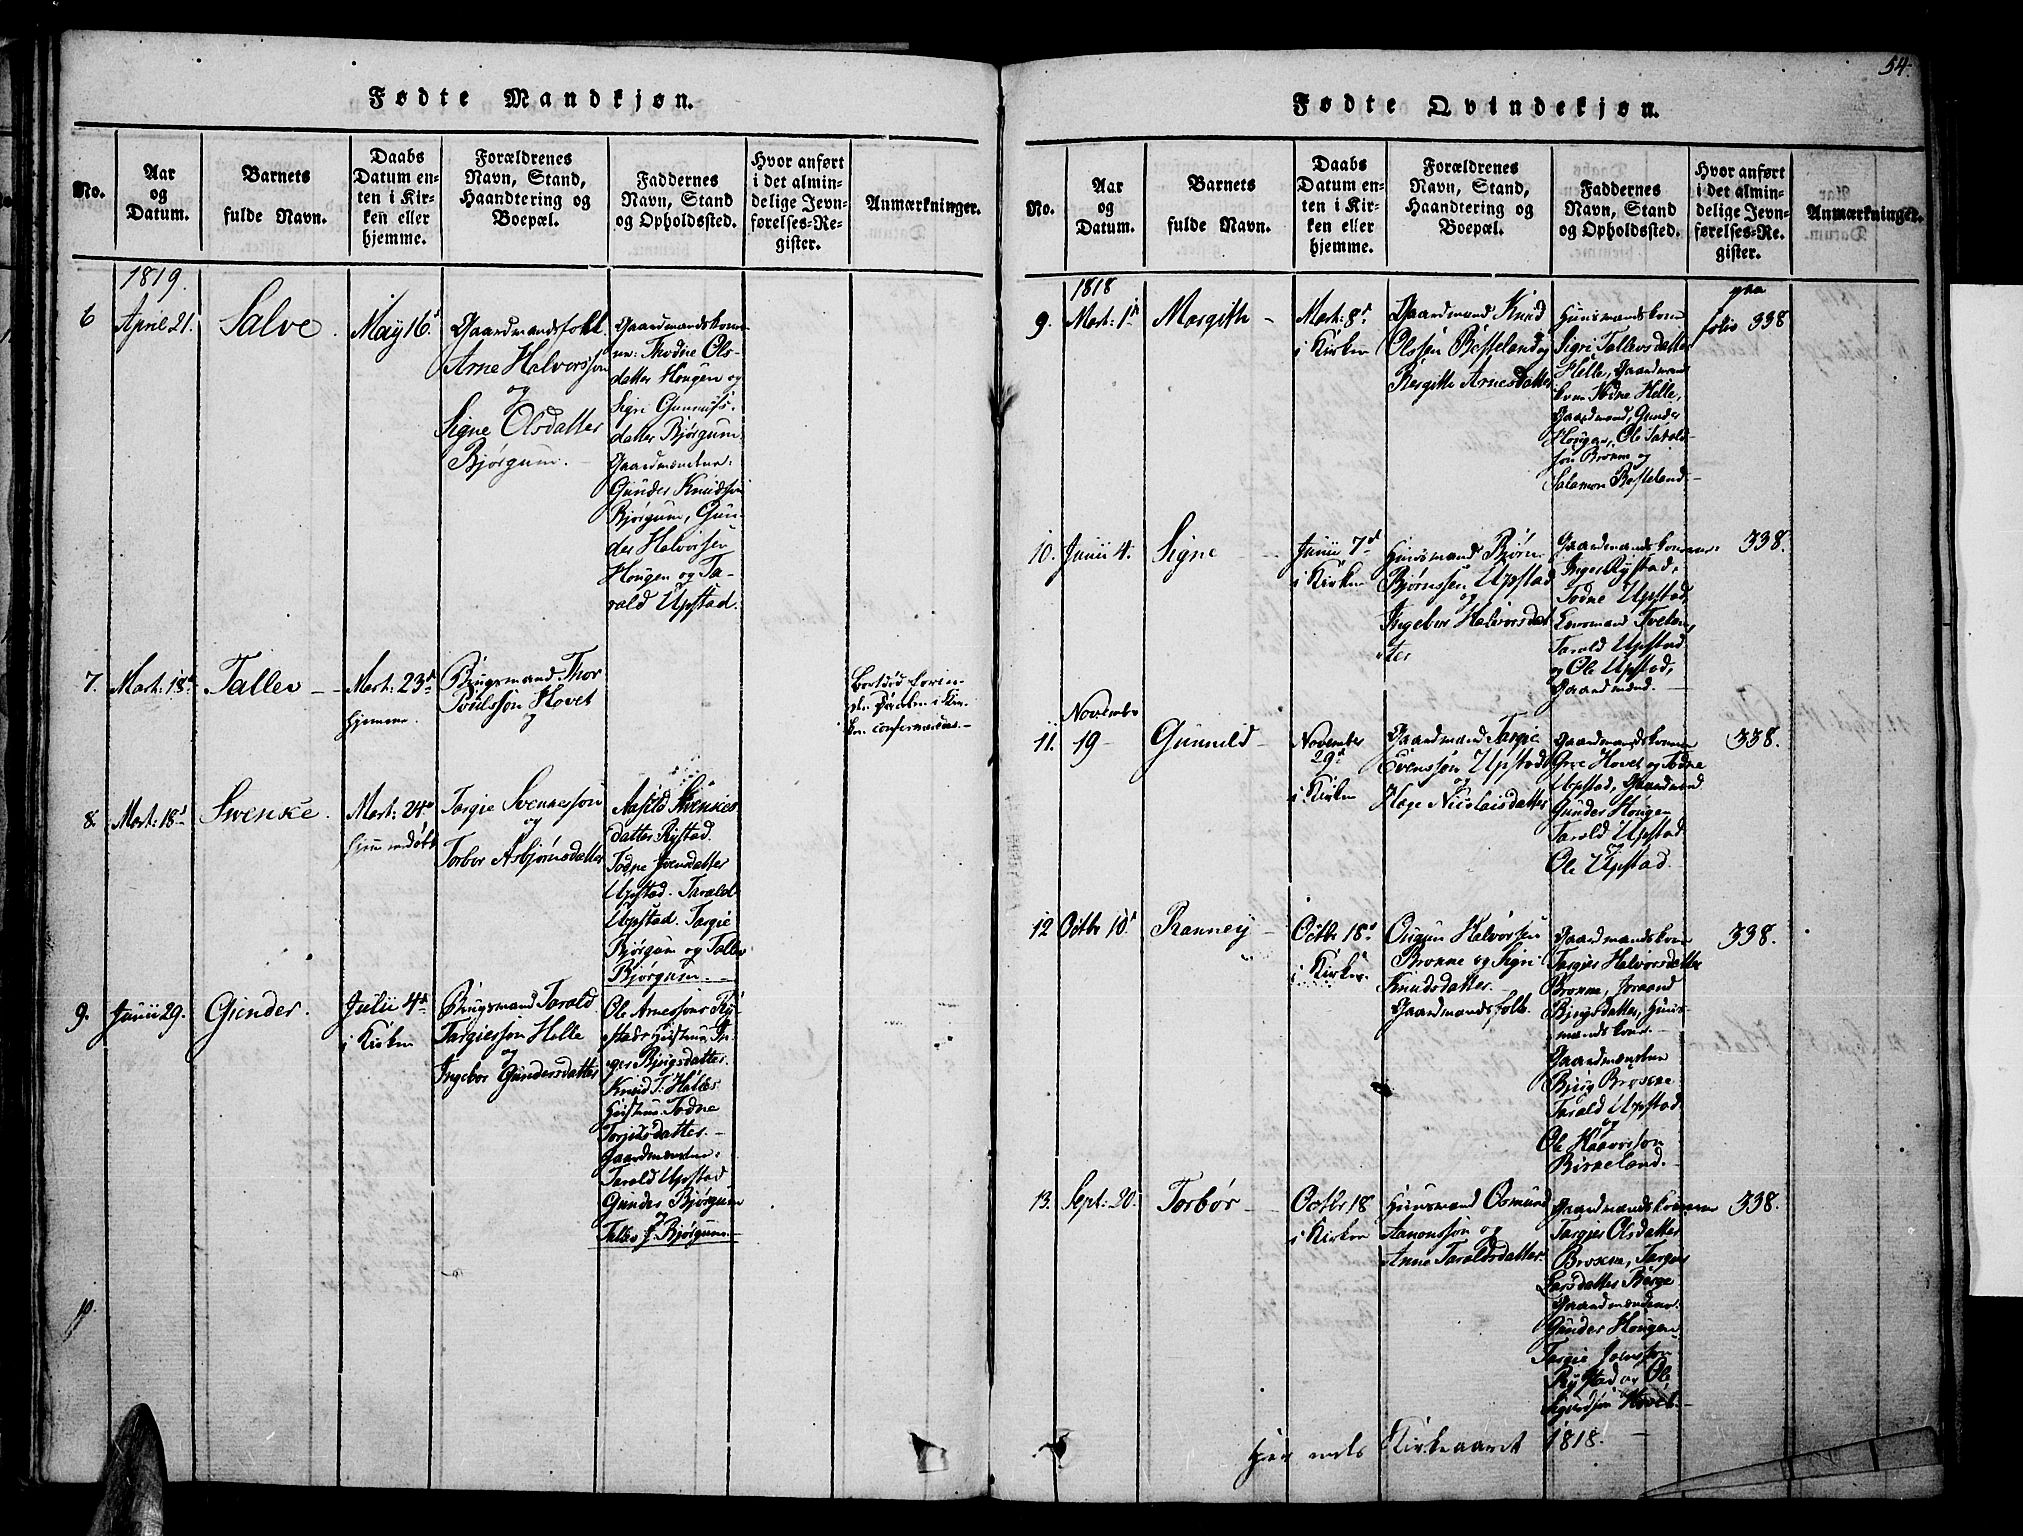 Fødte Mandkjøn.
No.
Aar
og
Datum.
Barnets
fulde Navn.
Daabs
Datum en-
ten i Kir-
ken eller
hjemme.
Forældrenes
Navn, Stand,
Haandtering og
Boepæl.
Faddernes
Navn, Stand
og Opholdssted.
Hvor anført
i det almin-
delige Jevn-
førelses-Re-
gister.
Anmærkninger.
1819.
6
April 21.
Salve.
May 16d
Gaardmandsfolk
Arne Halvorsson
og
Signe Olsdatter
Bjørgum.
Gaardmandskone
Thodne Ols-
datter Hougen og
Sigri Gunnufs-
datter Bjørgum
Gaardmændene:
Gunder Knudson
Bjørgum, Gun-
der Halvorsen
Hougen og Ta-
rald Upstad.
7.
Mart: 18d
Tallev
Mart: 23d
hjemme.
Bugsmand Thor
Poulsson Hovet
og
confirmeres
8.
Mart: 18d
Swenke.
Mart: 24d
Targie Svennesson
og
Torbor Asbjørnsdatter
Aasild Swenkes
datter Rystad.
Todne Jvensdatter
Upstad. Tarald
Upstad. Targie
Bjørgum og Tallev
Bjørgum.
9.
Junii 29.
Gunder.
Julii 4d
i Kirken
Bugsmand Tarald
Targiesson Helle
og
Ingebor Gundersdatter
Ole Arnessons Ry-
stads Hustrue, In-
ger Bjugsdatter.
Knud T: Helles
Hustrue Todne
Torjusdatter.
Gaardmændene:
Tarald Upstad
Gunder Bjørgum
og
Tallev J. Bjørgum.
10.
54.
Fødte Qvindekjøn.
No.
Aar
og
Datum.
Barnets
fulde Navn.
Daabs
Datum en-
ten i Kir-
ken eller
hjemme.
Forældrenes
Navn, Stand,
Haandtering og
Boepæl.
Faddernes
Navn, Stand
og Opholdssted.
Hvor anført
i det almin-
delige Jevn-
førelses-Re-
gister.
Anmærkninger.
1818
9.
Mart: 1st
Margith
Mart: 8d
i Kirken
Gaardmand Knud
Olssen Besteland og
Bergitte Arnesdatter
Huusmandskone
Sigri Tallevsdatter
Helle, Gaardmands
kone Todne Helle,
Gaardmand, Gunder
Hougen, Ole Tarald-
son Brokke og
Salamon Besteland.
paa
folio 338
10.
Junii 4.
Signe
Junii 7d
i Kirken
Huusmand Bjørn
Bjørnssen Upstad
og
Ingebor Halvorsdat
ter
Gaardmandskonerne:
Inger Rystad,
Todne Upstad,
Lensmand Tveten,
Tarald Upstad
og Ole Upstad,
Gaardmænd.
338.
11.
Novembr
19
Gunnild
November
29d
i Kirken
Gaardmand Targie
Evensson Upstad
og
Hage Nicolaisdatter
Gaardmandskonerne
Gro Hovet og Todne
Upstad, Gaardmænd
Gunder Hougen
Tarald Upstad
og
Ole Upstad.
338.
12
Octbr 10d
Ranney
Octbr 18d
i Kirken
Ougun Halvorsen
Brokke og Sigri
Knudsdatter
Gaardmandsfolk.
Gaardmandskone
Targier Halvorsdatter
Brokke, Joraand
Bjugsdatter, Huus-
mandskone.
Gaardmændene
Bjug Brokke
Tarald Upstad
og
Ole Haavorson
Birkeland.
338.
13.
Sept: 20.
Torbør
Octbr 18
i Kirken
Huusmand Osmund
Aanonsson og
Anne Taraldsdatter
Gaardmandskonerne
Targier Olsdatter
Brokke, Targier
Larsdatter Berge
Gaardmændene
Gunder Hougen
Targie Joensson
Rystad og Ole
Sigurdson Hovet.
338.
Her ends Kirkeaaret 1818.